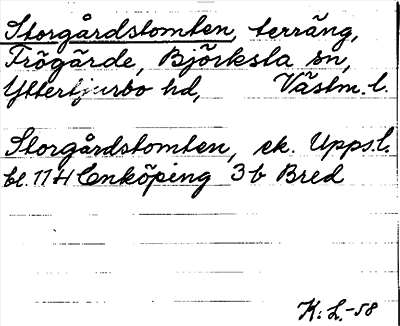 Storgårdstomten, terräng,
Frögärde, Björksta sn,
Yttertjurbo hd, Västm. l.
Storgårdstomten, ek. Upps. l.
bl. 11H Enköping 3b Bred
K: L. -58